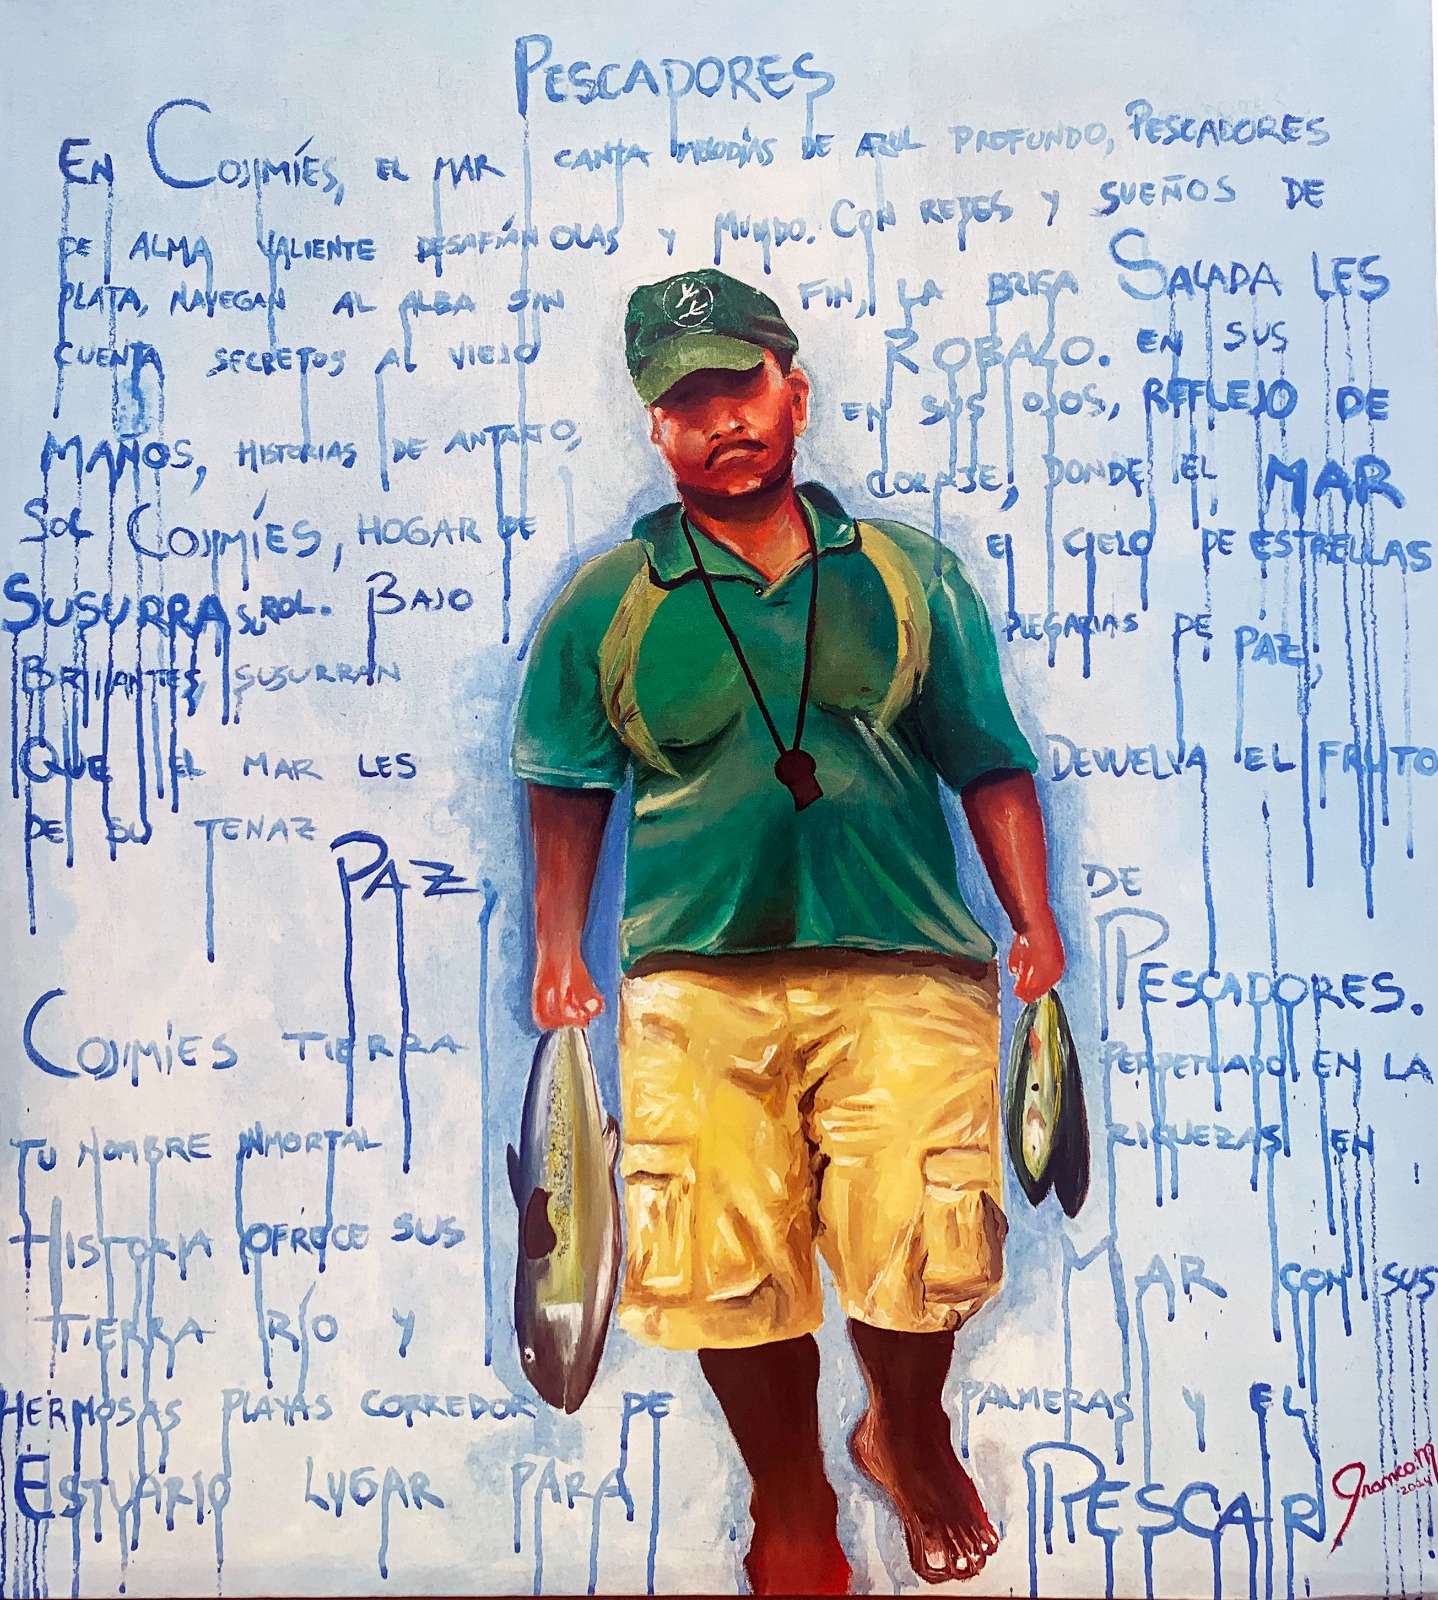 PESCADORES
EN COJIMÍES, EL MAR CANTA MELODÍAS DE AZUL PROFUNDO, PESCADORES
DE ALMA VALIENTE DESAFÍAN OLAS Y MUNDO. CON REDES Y SUEÑOS DE
PLATA, NAVEGAN AL ALBA SIN FIN, LA BRISA SALADA LES
CUENTA SECRETOS AL VIEJO ROBALO. EN SUS
MAÑOS, HISTORIAS DE ANTAÑO, EN SUS OJOS, REFLEJO DE
SOL COJIMÍES, HOGAR DE CORAJE, DONDE EL MAR
SUSURRA SU ROL. BAJO EL CIELO DE ESTRELLAS
BRILLANTES, SUSURRAN PLEGARIAS DE PAZ,
QUE EL MAR LES DEVUELVA EL FRUTO
DE SU TENAZ PAZ, DE PESCADORES.
COJIMÍES TIERRA PERPETUADO EN LA
TU NOMBRE INMORTAL RIQUEZAS EN
HISTORIA OFRECE SUS MAR CON SUS
TIERRA RÍO Y
HERMOSAS PLAYAS CORREDOR DE PALMERAS Y EL
ESTUARIO LUGAR PARA PESCAR.
Franco.M
2024